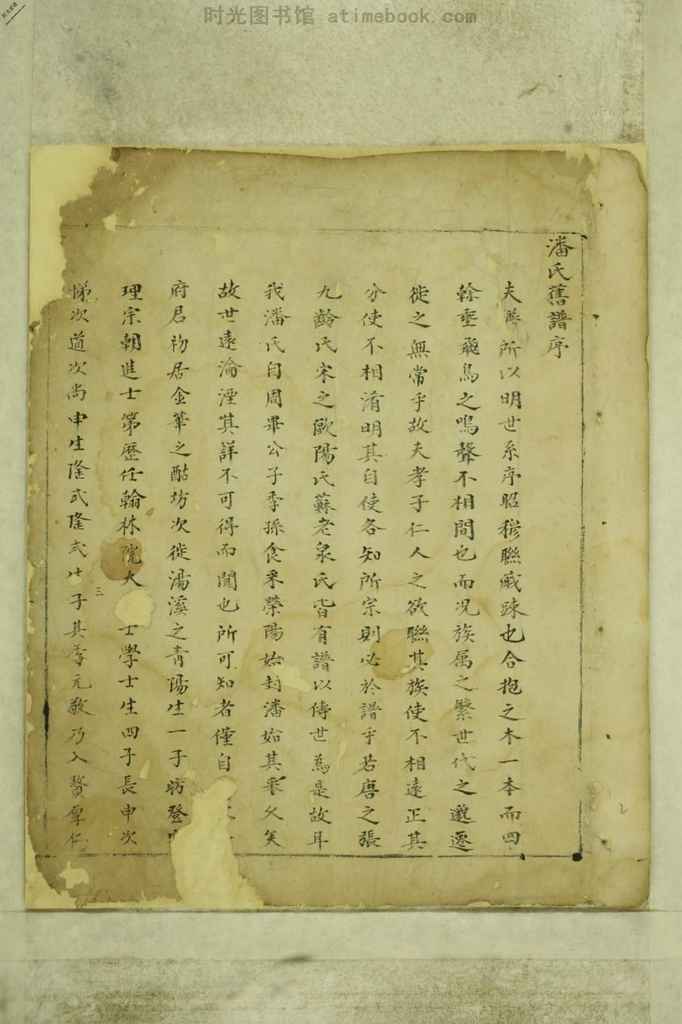 时光图书馆 atimebook.com
潘氏舊譜序
夫譜所以明世系序昭穆聯戚疎也合抱之木一本而四
幹垂飛鳥之鳴聲不相間也而况族属之繁世代之邈遷
徙之無常乎故夫孝子仁人之欲聯其族使不相遠正其
分使不相淆明其自使各知所宗則必於譜乎若唐之張
九齡氏宋之歐陽氏蘇老泉氏皆有譜以傳世焉是故耳
我潘氏自周畢公子季孫食采榮陽始封潘姑其來久矣
故世遠淪湮其詳不可得而聞也所可知者僅自
府君初居金華之酤坊次徙湯溪之青陽生一子昉登
理宗朝進士第歷任翰林院大士學士生四子長申次
悌次道次尚申生隆弎隆弎生子其季元敬乃入贅厚仁
三